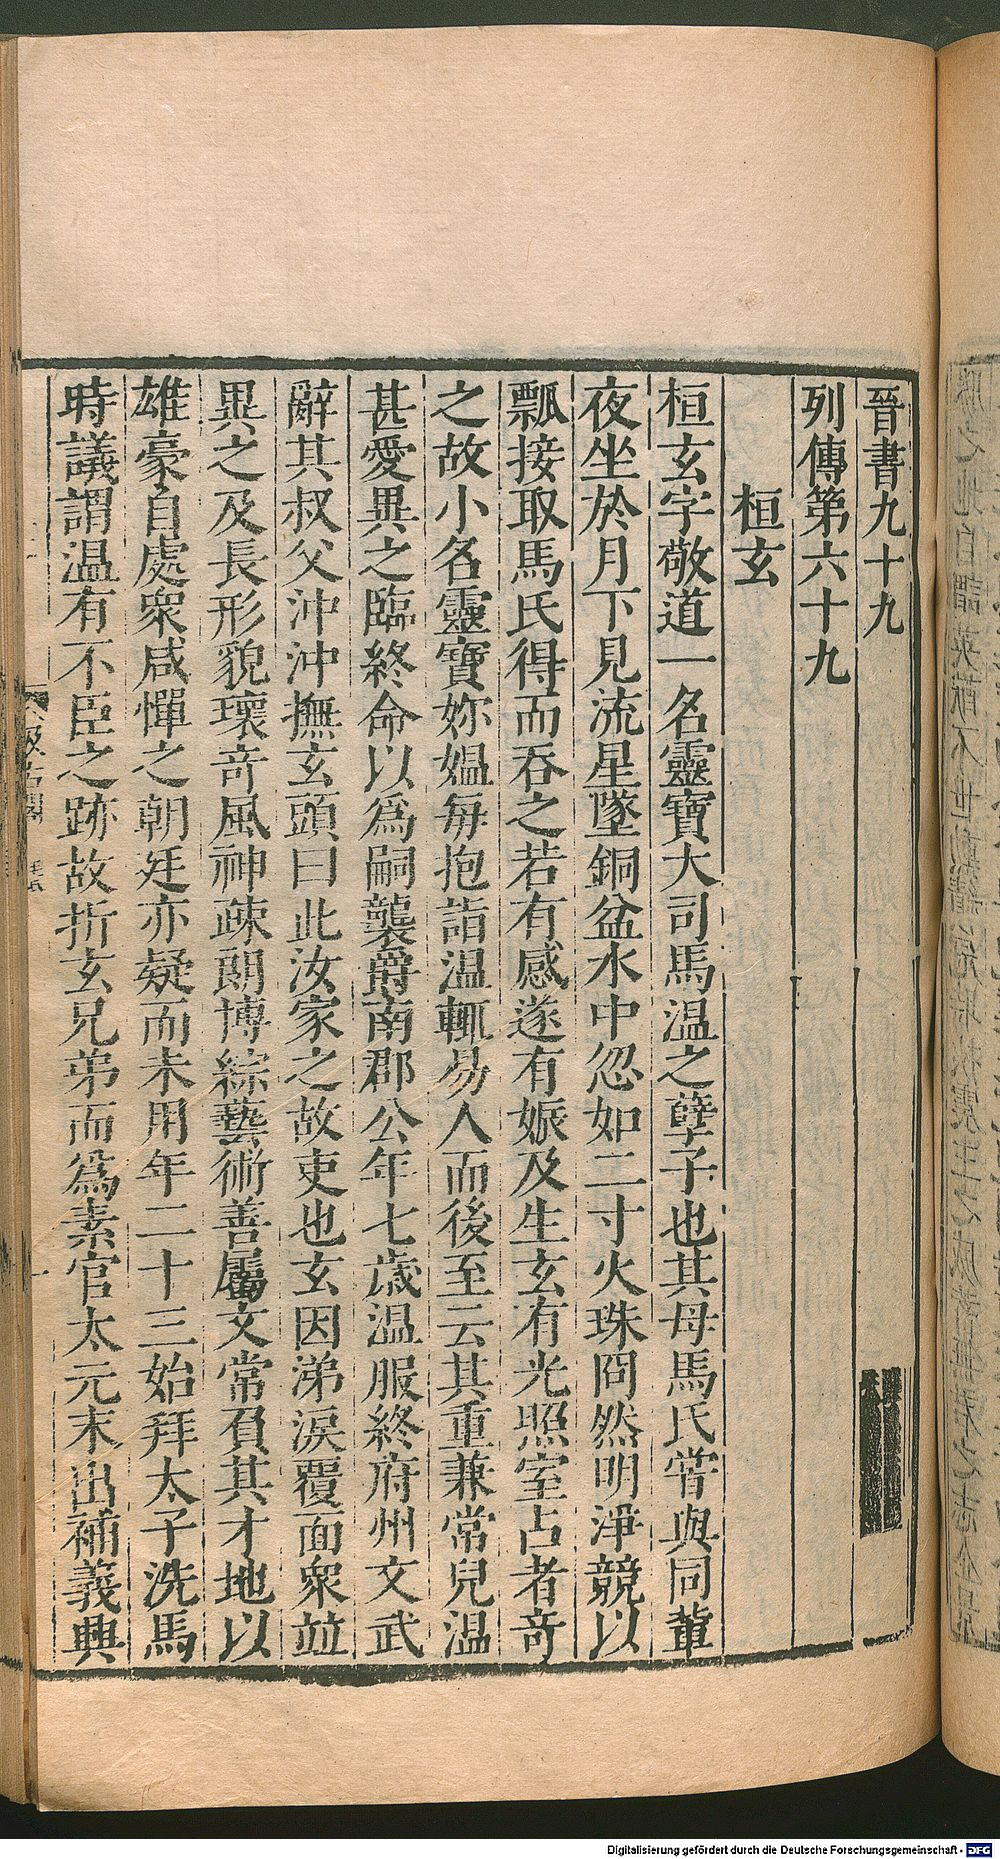 晉書九十九
列傳第六十九
桓玄
桓玄字敬道一名靈寶大司馬温之孽子也其母馬氏嘗與同輩
夜坐於月下見流星墜銅盆水中忽如二寸火珠冏然明淨競以
瓢接取馬氏得而吞之若有感遂有娠及生玄有光照室占者奇
之故小名靈寶妳媪每抱詣温輒易人而後至云其重兼常兒温
甚愛異之臨終命以爲嗣襲爵南郡公年七歲温服終府州文武
辭其叔父沖沖撫玄頭曰此汝家之故吏也玄因涕淚覆面衆竝
異之及長形貌瓌奇風神疎朗博綜藝術善屬文常負其才地以
雄豪自處衆咸憚之朝廷亦疑而未用年二十三始拜太子洗馬
時議謂温有不臣之跡故折玄兄弟而爲素官太元末出補義興
Digitalisierung gefördert durch die Deutsche Forschungsgemeinschaft - DFG